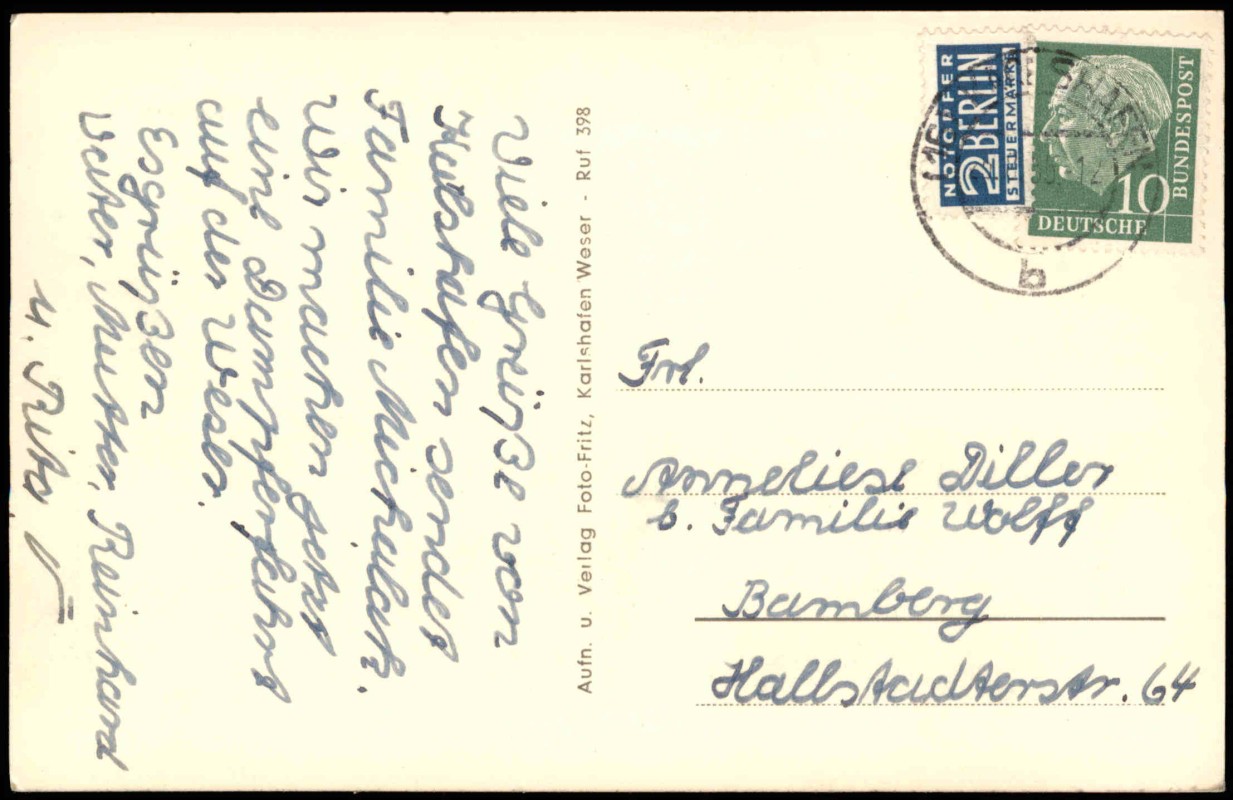 Viele Grüße von
Karlshafen sendet
Familie Michalatz.
Wir machen jetzt
eine Dampferfahrt
auf der Weser.
Es grüßen
Vater, Mutter, Reinhard
u. Rita
Aufn. u. Verlag Foto-Fritz, Karlshafen Weser - Ruf 398
NOTOPFER
2 BERLIN
STEUERMARKE
10
DEUTSCHE
BUNDESPOST
b
Frl.
Anneliese Diller
b. Familie Wolff
Bamberg
Hallstadterstr. 64